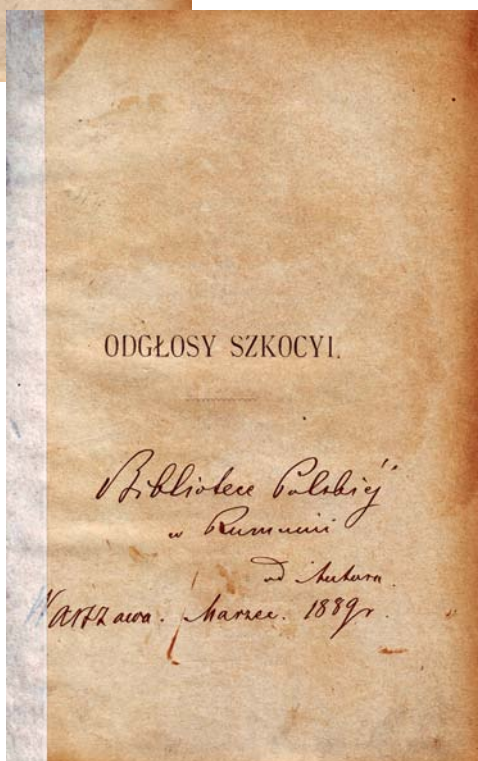 ODGŁOSY SZKOCYI.
Bibliotece Polskiéj
w Rumunii
od Autora.
Warszawa. Marzec. 1889 r.